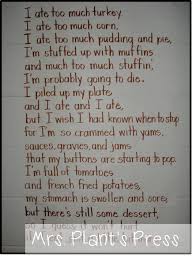 I ate too much turkey.
I ate too much corn.
I ate too much pudding and pie,
I'm stuffed up with muffins
and much too much stuffin',
I'm probably going to die.
I piled up my plate
and I ate and I ate,
but I wish I had known when to stop
for I'm so crammed with yams,
sauces, gravies, and jams
that my buttons are starting to pop.
I'm full of tomatoes
and french fried potatoes,
my stomach is swollen and sore,
but there's still some dessert,
Mrs. Plant's Press